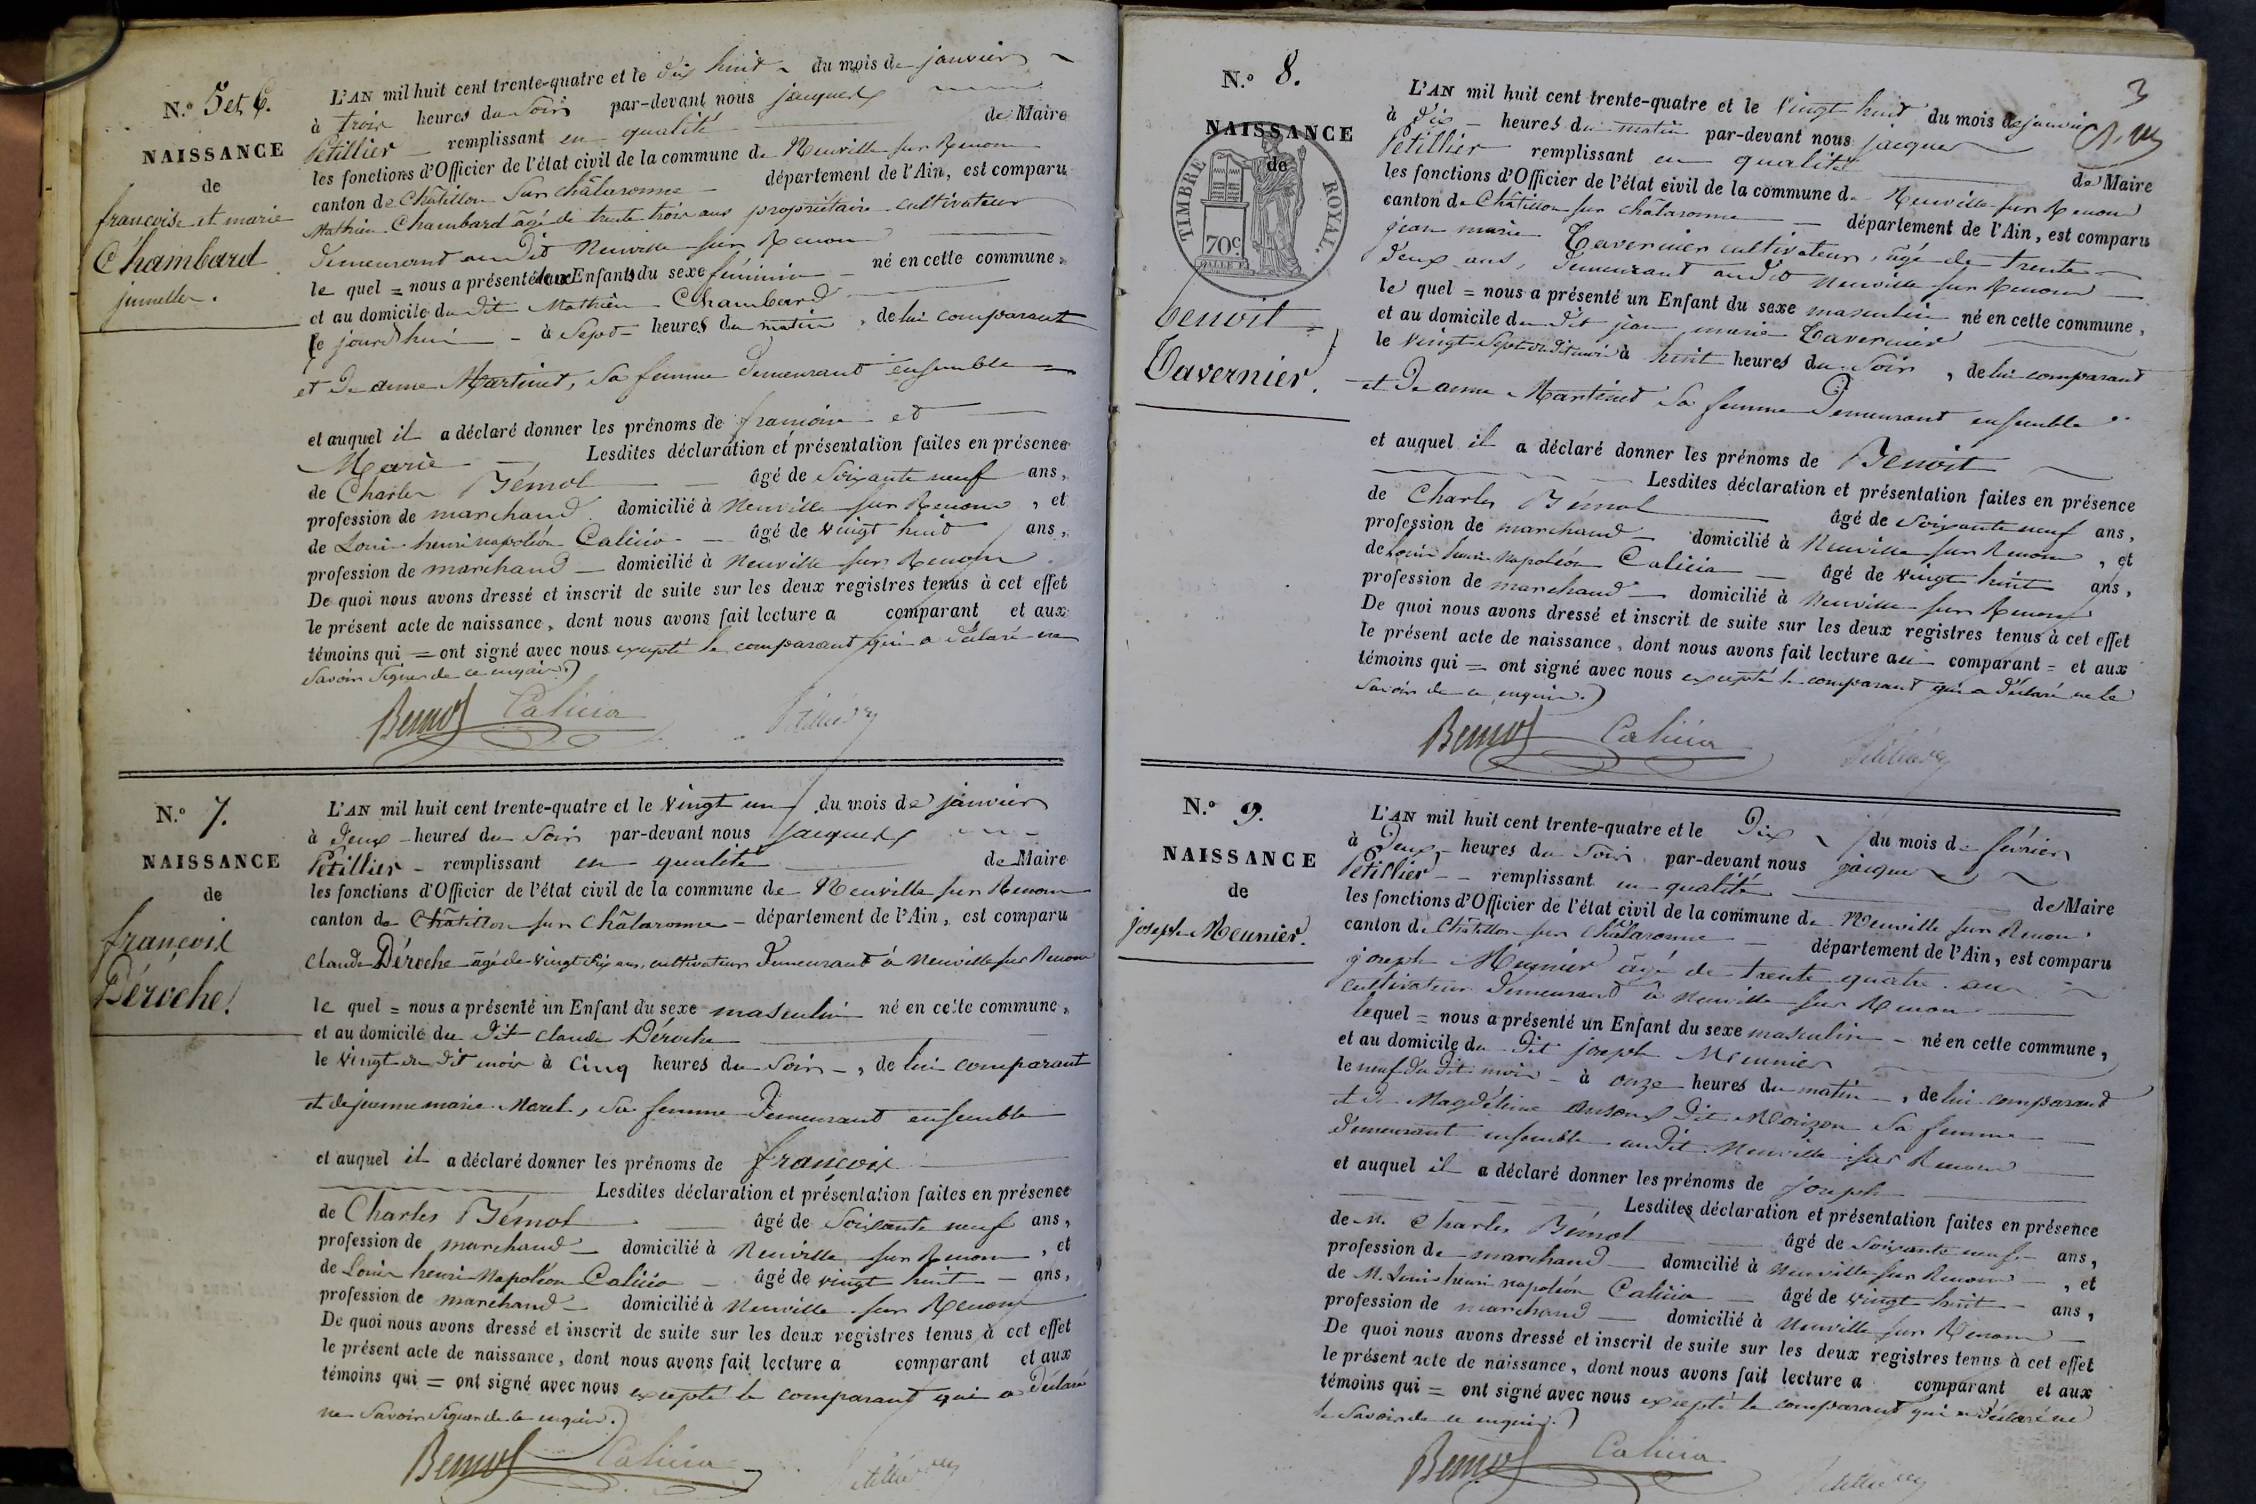 N.º 5 et 6.
NAISSANCE
de
françoise et marie
Chambard
jumelles.
L'AN mil huit cent trente-quatre et le dix huit du mois de janvier
à trois heures du soir par-devant nous jacques
Petillier remplissant en qualité de Maire
les fonctions d'Officier de l'état civil de la commune de Neuville sur Renom
canton de Châtillon sur châlaronne département de l'Ain, est comparu
Mathieu Chambard âgé de trente trois ans propriétaire cultivateur
demeurant au dit Neuville sur Renom
le quel = nous a présenté deux Enfants du sexe féminin né en cette commune,
et au domicile du dit Mathieu Chambard
ce jourd'hui à Sept heures du matin, de lui comparant
et de anne Martinet, sa femme demeurant ensemble
et auquel il a déclaré donner les prénoms de françoise et
Marie Lesdites déclaration et présentation faites en présence
de Charles Bémol âgé de Soixante neuf ans,
profession de marchand domicilié à Neuville sur Renom, et
de Louis henri napoléon Calicia âgé de vingt huit ans,
profession de marchand domicilié à Neuville sur Renom
De quoi nous avons dressé et inscrit de suite sur les deux registres tenus à cet effet
le présent acte de naissance, dont nous avons fait lecture a comparant et aux
témoins qui = ont signé avec nous excepté le comparant qui a déclaré ne
savoir signer de ce enquis.
Bemol Calicia Petillier
N.º 7.
NAISSANCE
de
françois
Déroche
L'AN mil huit cent trente-quatre et le vingt un du mois de janvier
à deux heures du soir par-devant nous jacques
Petillier remplissant en qualité de Maire
les fonctions d'Officier de l'état civil de la commune de Neuville sur Renom
canton de Châtillon sur Châlaronne département de l'Ain, est comparu
claude Déroche âgé de vingt six ans, cultivateur demeurant à Neuville sur Renom
le quel = nous a présenté un Enfant du sexe masculin né en cette commune,
et au domicile du dit claude Déroche
le vingt du dit mois à cinq heures du soir, de lui comparant
et de jeanne marie Morel, sa femme demeurant ensemble
et auquel il a déclaré donner les prénoms de françois
Lesdites déclaration et présentation faites en présence
de Charles Bémol âgé de Soixante neuf ans,
profession de marchand domicilié à Neuville sur Renom, et
de Louis henri Napoléon Calicia âgé de vingt huit ans,
profession de marchand domicilié à Neuville sur Renom
De quoi nous avons dressé et inscrit de suite sur les deux registres tenus à cet effet
le présent acte de naissance, dont nous avons fait lecture a comparant et aux
témoins qui = ont signé avec nous excepté le comparant qui a déclaré
ne savoir signer de ce enquis.
Bemol Calicia Petillier
3
N.º 8.
NAISSANCE
de
TIMBRE ROYAL.
70c
benoit
Tavernier.
L'AN mil huit cent trente-quatre et le vingt huit du mois de janvier
à dix heures du matin par-devant nous jacques
Petillier remplissant en qualité de Maire
les fonctions d'Officier de l'état civil de la commune de Neuville sur Renom
canton de Châtillon sur châlaronne département de l'Ain, est comparu
jean marie Tavernier cultivateur, âgé de trente
deux ans, demeurant au dit Neuville sur Renom
le quel = nous a présenté un Enfant du sexe masculin né en cette commune,
et au domicile du dit jean marie Tavernier
le vingt sept du dit mois à huit heures du soir, de lui comparant
et de anne Martinet sa femme demeurant ensemble
et auquel il a déclaré donner les prénoms de Benoit
Lesdites déclaration et présentation faites en présence
de Charles Bémol âgé de soixante neuf ans,
profession de marchand domicilié à Neuville sur Renom, et
de Louis henri Napoléon Calicia âgé de vingt huit ans,
profession de marchand domicilié à Neuville sur Renom
De quoi nous avons dressé et inscrit de suite sur les deux registres tenus à cet effet
le présent acte de naissance, dont nous avons fait lecture au comparant = et aux
témoins qui = ont signé avec nous excepté le comparant qui a déclaré ne le
savoir de ce enquis.
Bemol Calicia Petillier
N.º 9.
NAISSANCE
de
joseph Meunier.
L'AN mil huit cent trente-quatre et le Dix du mois de février
à Deux heures du soir par-devant nous jacques
Petillier remplissant en qualité de Maire
les fonctions d'Officier de l'état civil de la commune de Neuville sur Renom
canton de Châtillon sur Châlaronne département de l'Ain, est comparu
joseph Meunier âgé de trente quatre ans
cultivateur demeurant à Neuville sur Renom
lequel = nous a présenté un Enfant du sexe masculin né en cette commune,
et au domicile du dit joseph Meunier
le neuf du dit mois à onze heures du matin, de lui comparant
et de Magdeleine dit sa femme
demeurant ensemble au dit Neuville sur Renom
et auquel il a déclaré donner les prénoms de joseph
Lesdites déclaration et présentation faites en présence
de M. Charles Bémol âgé de soixante neuf ans,
profession de marchand domicilié à Neuville sur Renom, et
de M. Louis henri napoléon Calicia âgé de vingt huit ans,
profession de marchand domicilié à Neuville sur Renom
De quoi nous avons dressé et inscrit de suite sur les deux registres tenus à cet effet
le présent acte de naissance, dont nous avons fait lecture a comparant et aux
témoins qui = ont signé avec nous excepté le comparant qui a déclaré ne
le savoir de ce enquis.
Bemol Calicia Petillier